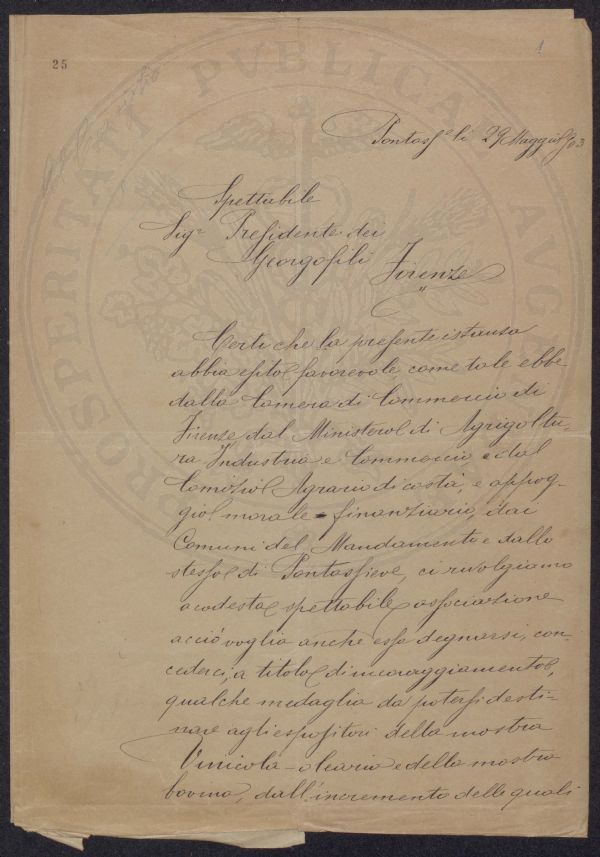 25
1
Pontassᵉ li 29 Maggio 903
Spettabile
Sigʳ Presidente dei
Georgofili Firenze
Certi che la presente istanza
abbia esito favorevole come tale ebbe
dalla Camera di Commercio di
Firenze, dal Ministero di Agrigoltu-
ra Industria e Commercio e dal
Comizio Agrario di costà, e appog-
gio morale - finanziario, dai
Comuni del Mandamento e dallo
stesso di Pontassieve, ci rivolgiamo
a codesta spettabile associazione
acciò voglia anche essa degnarsi, con-
cederci, a titolo di incoraggiamento,
qualche medaglia da potersi desti-
nare agli espositori della mostra
Vinicola - olearia e della mostra
bovina, dall'incremento delle quali
PROSPERITATI PUBLICAE AUGENDAE